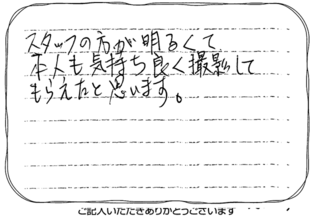 スタッフの方が明るくて
本人も気持ち良く撮影して
もらえたと思います。
ご記入いただきありがとうございます